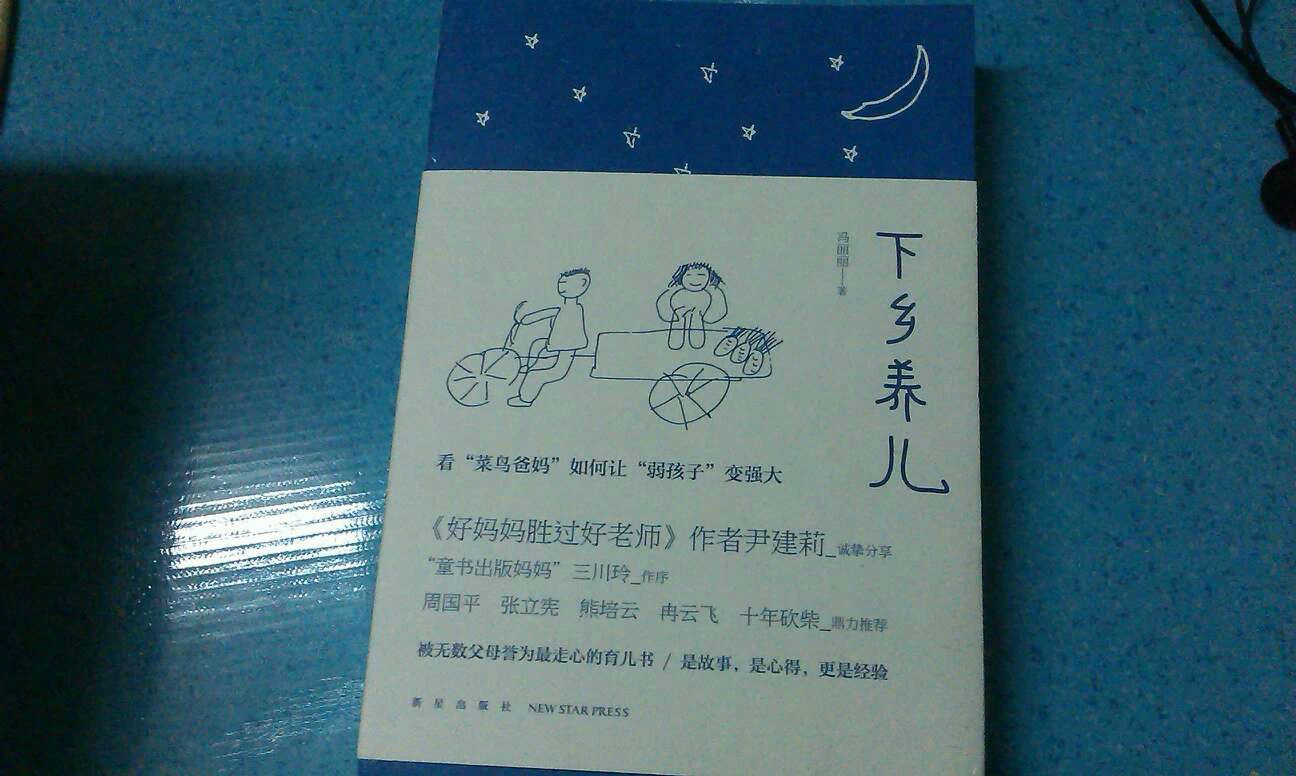 下乡养儿
冯丽丽——著
看“菜鸟爸妈”如何让“弱孩子”变强大
《好妈妈胜过好老师》作者尹建莉_诚挚分享
“童书出版妈妈”三川玲_作序
周国平 张立宪 熊培云 冉云飞 十年砍柴_鼎力推荐
被无数父母誉为最走心的育儿书 / 是故事，是心得，更是经验
新星出版社 NEW STAR PRESS